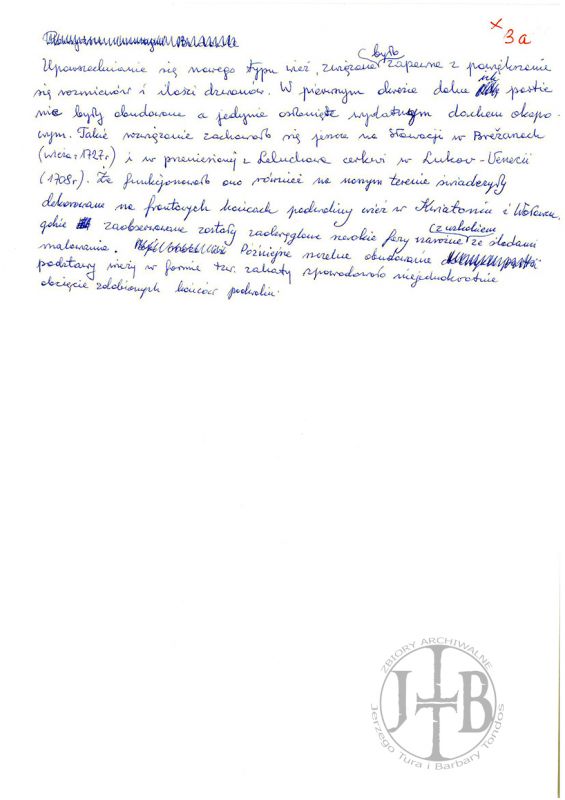 x 3a
Upowszechnianie się nowego typu wież, związane było zapewne z powiększanie
się rozmiarów i ilości dzwonów. W pierwszym okresie dolne ich partie
nie były obudowane a jedynie osłonięte wydatnym dachem okapo-
wym. Takie rozwiązanie zachowało się jeszcze na Słowacji w Breżanach
(wieża 1727r) i w przeniesionej z Leluchowa cerkwi w Lukov-Venecii
(1708r). Że funkcjonowało ono również na naszym terenie świadczyły
dekorowane na frontowych końcach podwaliny wież w Kwiatoniu i Wołowcu,
gdzie zaobserwowane zostały zaokrąglone szerokie fazy z wałkiem ze śladami
malowania. Późniejsze wtórne obudowanie
podstawy wieży w formie tzw. zachaty spowodowało niejednokrotnie
obcięcie zdobionych końców podwalin.
ZBIORY ARCHIWALNE
JTTB
Jerzego Tura i Barbary Tondos